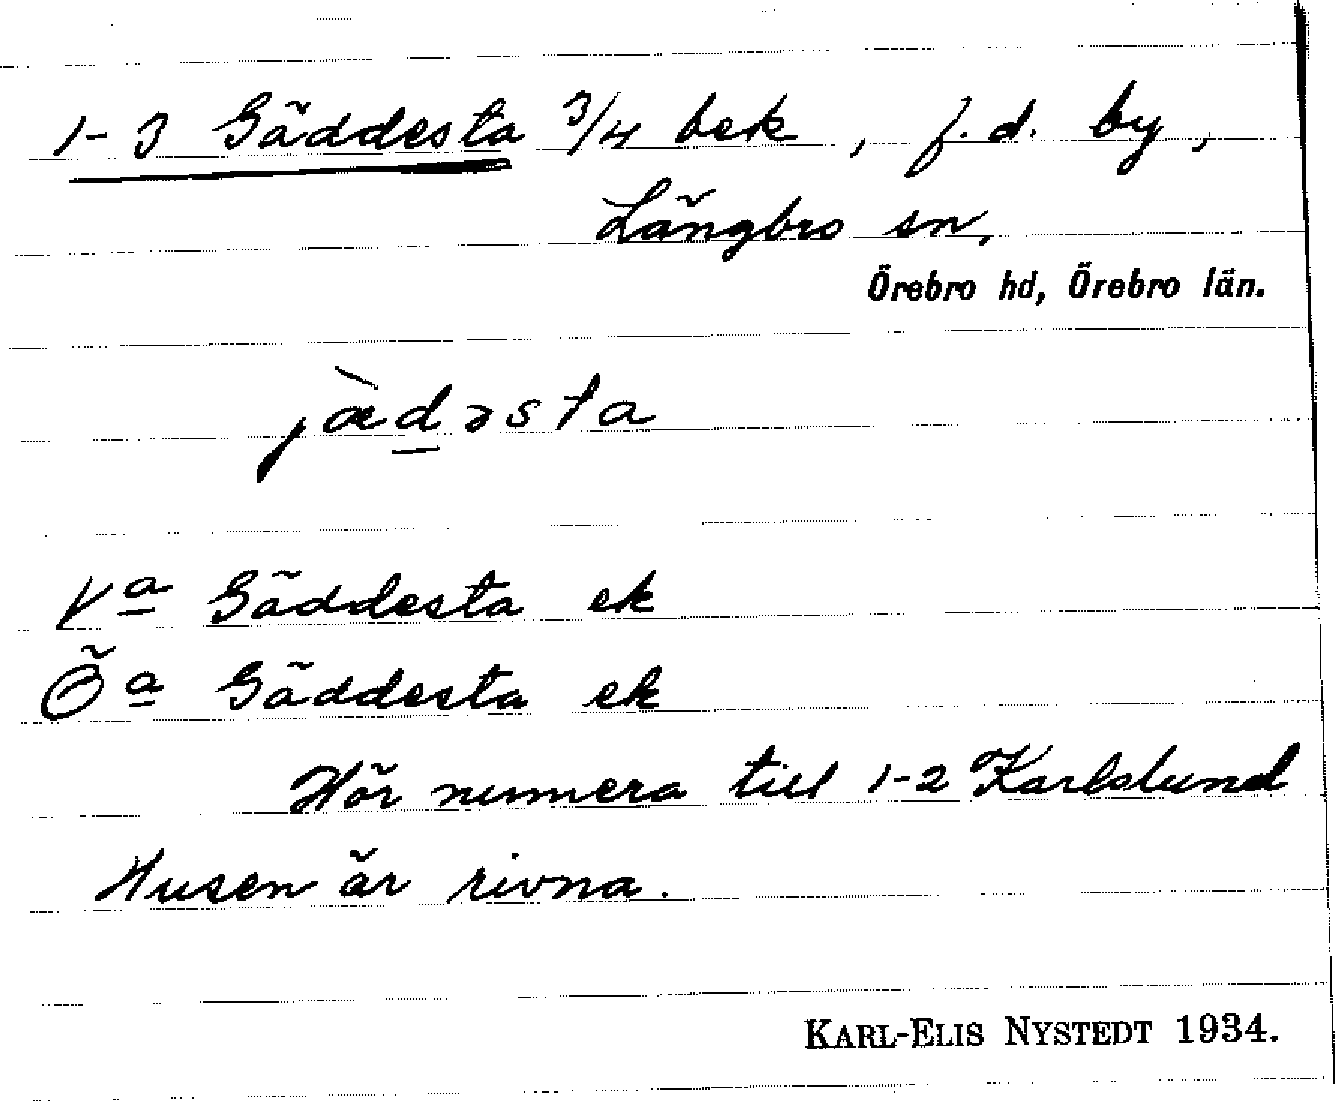 1-3 Gäddesta 3/4 bek, f.d. by,
Längbro sn,
Örebro hd, Örebro län.
jæ̀d̲əsta
Va Gäddesta ek
Öa Gäddesta ek
Hör numera till 1-2 Karlslund
Husen är rivna.
KARL-ELIS NYSTEDT 1934.